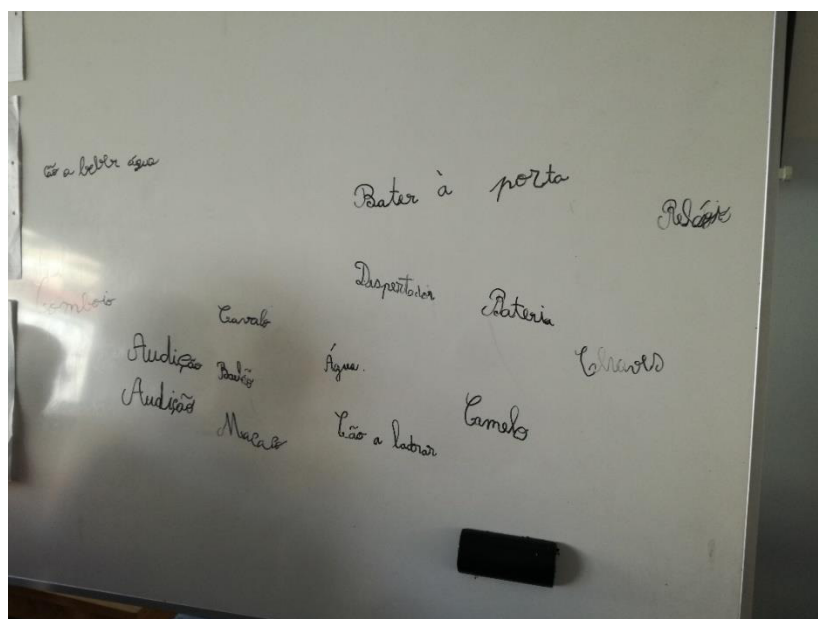 Cão a beber água
Bater à porta
Relógio
Despertador
Comboio
Cavalo
Bateria
Audição
Balão
Água.
Chaves
Audição
Macaco
Cão a ladrar
Camelo